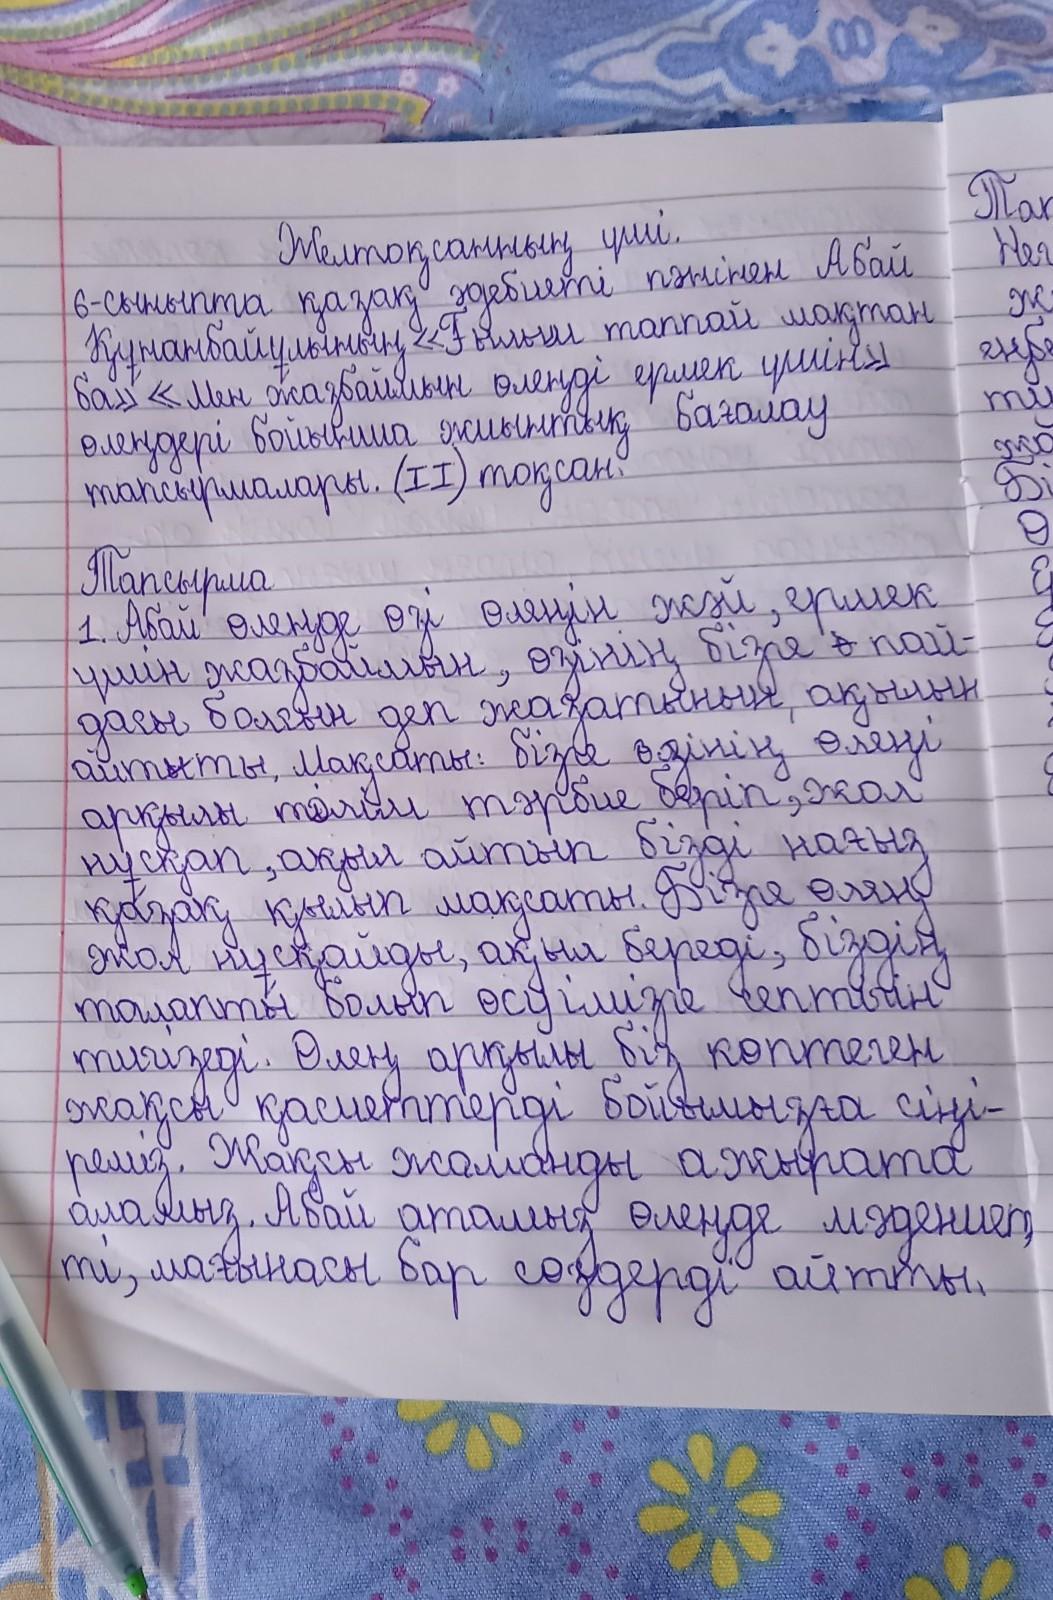 Желтоқсанның үші.
6-сыныпта қазақ әдебиеті пәнінен Абай
Құнанбайұлының «Ғылым таппай мақтан
ба» «Мен жазбаймын өлеңді ермек үшін»
өлеңдері бойынша жиынтық бағалау
тапсырмалары. (II) тоқсан.
Тапсырма
1. Абай өлеңде өзі өлеңін жәй, ермек
үшін жазбаймын, өзінің бізге пай-
дасы болсын деп жазатынын, ақылын
айтыты, Мақсаты: бізге өзінің өлеңі
арқылы тәлім тәрбие беріп, жол
нұсқап, ақыл айтып бізді нағыз
қазақ қылып мақсаты. Бізге өлең
жол нұсқайды, ақыл береді, біздің
талапты болып өсуімізге септігін
тигізеді. Өлең арқылы біз көптеген
жақсы қасиеттерді бойымызға сіңі-
реміз. Жақсы жаманды ажырата
аламыз. Абай атамыз өлеңде мәдениет
ті, мағынасы бар сөздерді айтты.
Тап
Нег